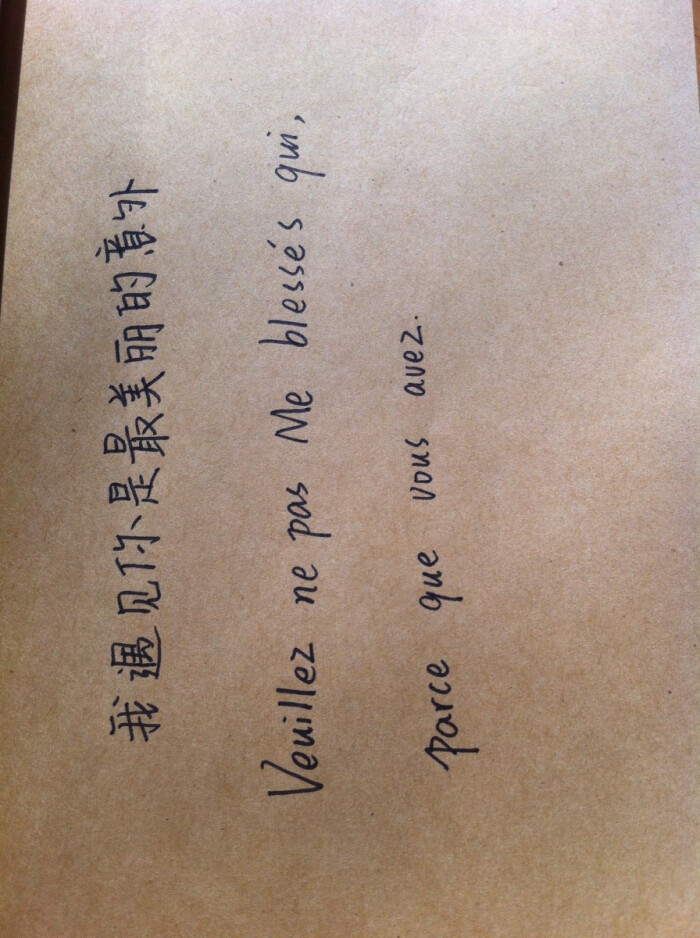 我遇见你是最美丽的意外
Veuillez ne pas Me blessés qui,
parce que vous avez.